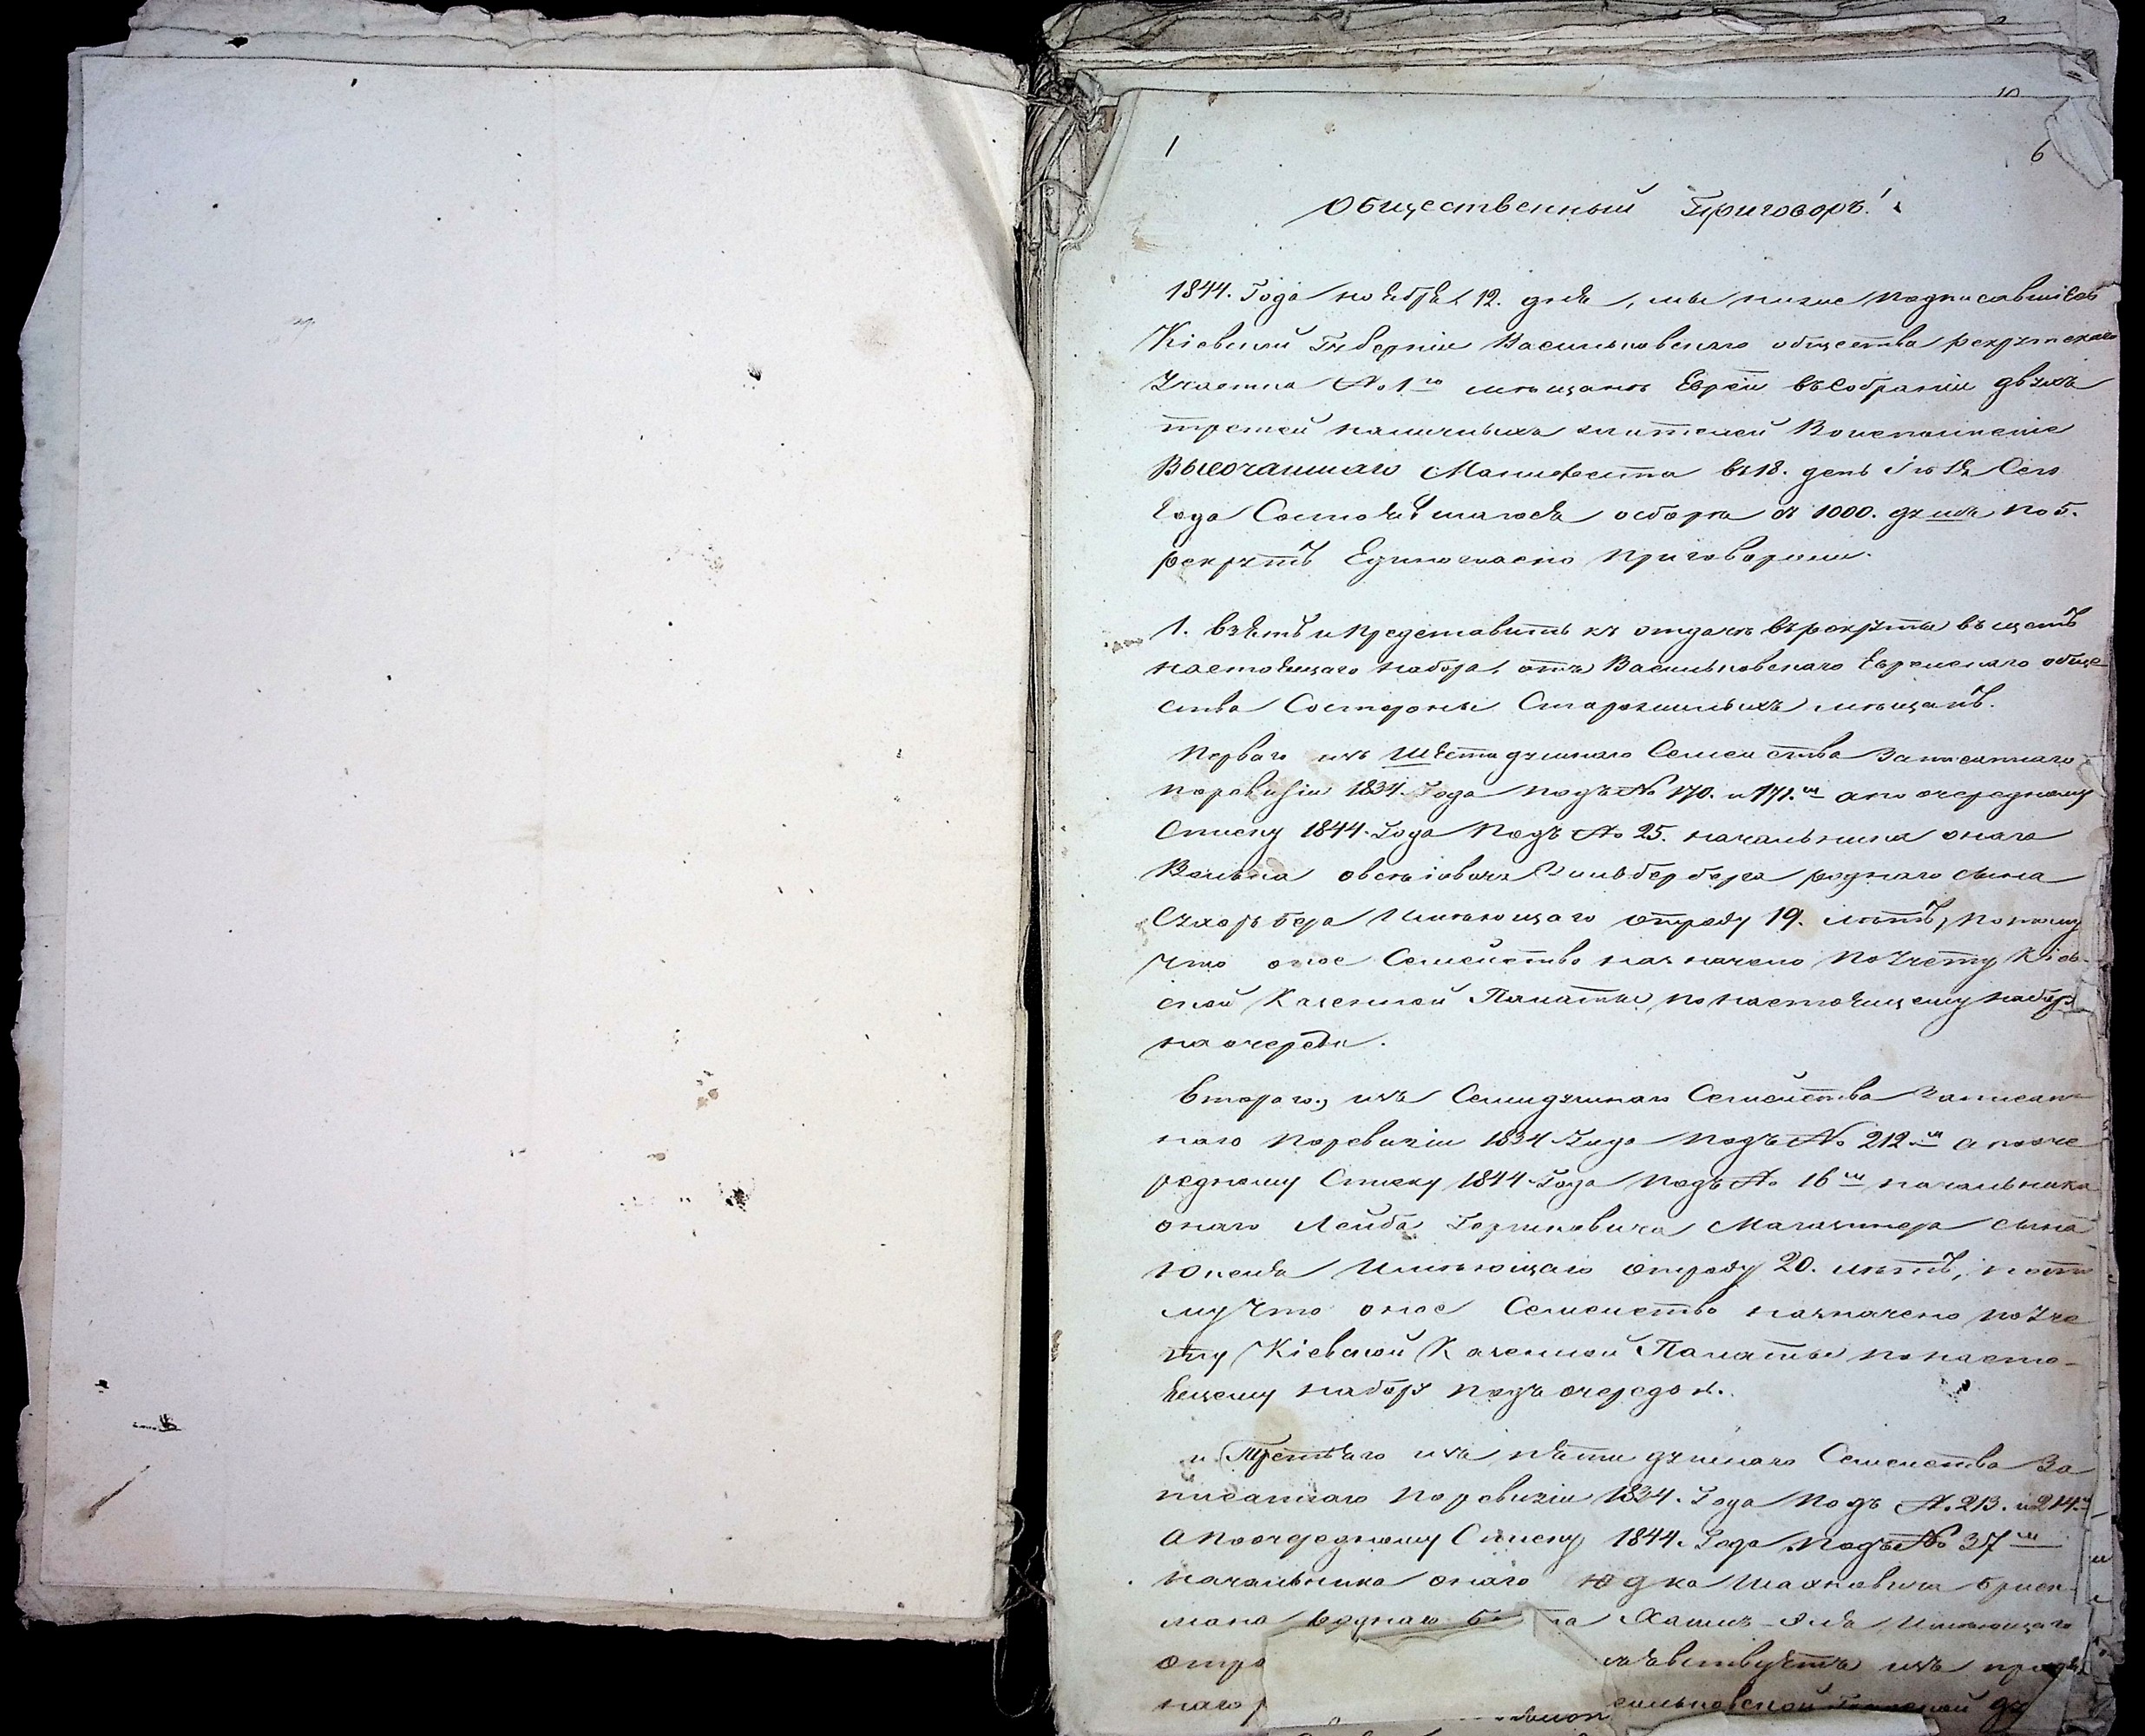 10
1 6
Общественный Приговоръ!
1844. Года ноября 12. дня, мы ниже подписавшіеся
Кіевской Губерніи Васильковскаго общества рекрутскаго
Участка № 1го мѣщане Евреи въ собраніи двухъ
третей наличныхъ жителей Во исполненіе
Высочайшаго Манифеста въ 18. день Іюля Сего
Года Состоявшагося о сборѣ съ 1000. душъ по 5.
рекрутъ Единогласно приговорили.
1. взять и представить къ отдачѣ въ рекруты въ щетъ
настоящаго набора, отъ Васильковскаго Еврейскаго обще
ства Состороны Старожилыхъ мѣщанъ.
Перваго изъ Шестидушнаго Семейства Записаннаго
поревизіи 1834. Года подъ № 170. и 171.м а по очередному
Списку 1844. Года Подъ № 25. начальника онаго
Волька Овсіовича Зильберберга роднаго сына
Сухорь бера Имѣющаго отроду 19. лѣтъ, потому
что оное Семейство назначено по Учету Кіев-
ской Казенной Палаты по настоящему набору
на очереди.
втораго, изъ Семидушнаго Семейства Записан
наго поревизіи 1834 Года подъ № 212м а пооче
редному Списку 1844 Года подъ № 16м начальника
онаго Лейба Гершковича Магазинера сына
Юкеля Имѣющаго отроду 20. лѣтъ, пото
му что оное Семейство назначено по Уче
ту Кіевской Казенной Палаты по насто-
ящему набору подъ очередью.
и Третьяго изъ пяти душнаго Семейства За
писаннаго Поревизіи 1834. Года Подъ №. 213. и 214.м
а Поочередному Списку 1844. Года Подъ № 37м
начальника онаго Юдка Шахновича
мана роднаго Имѣющаго
отро ствуетъ изъ
наго сильковской Городской ду